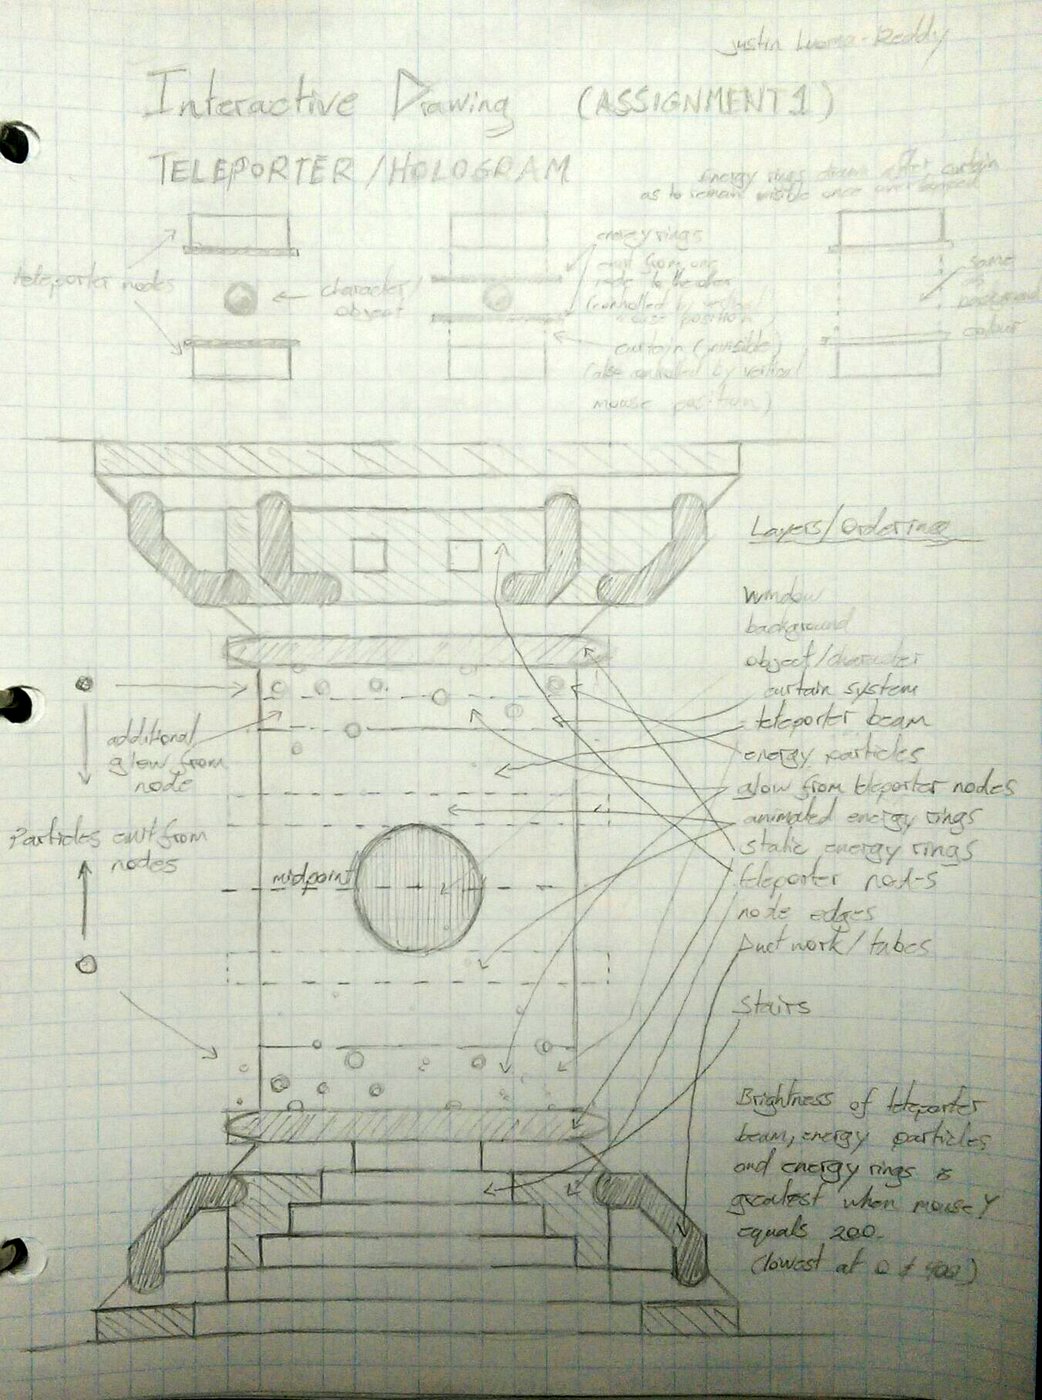 Justin Luoma-Reddy
Interactive Drawing (ASSIGNMENT 1)
TELEPORTER/HOLOGRAM
energy rings drawn after curtain
as to remain visible once overlapped
teleporter nodes
character/
object
energy rings
emit from one
node to the other
(controlled by vertical
mouse position)
curtain (invisible)
(also controlled by vertical
mouse position)
same
as
background
colour
Layers/Ordering
Window
background
object/character
curtain system
teleporter beam
energy particles
glow from teleporter nodes
animated energy rings
static energy rings
teleporter nodes
node edges
Ductwork/tubes
Stairs
additional
glow from
node
Particles emit from
nodes
midpoint
Brightness of teleporter
beam, energy particles
and energy rings is
greatest when mouseY
equals 200.
(lowest at 0 & 400)